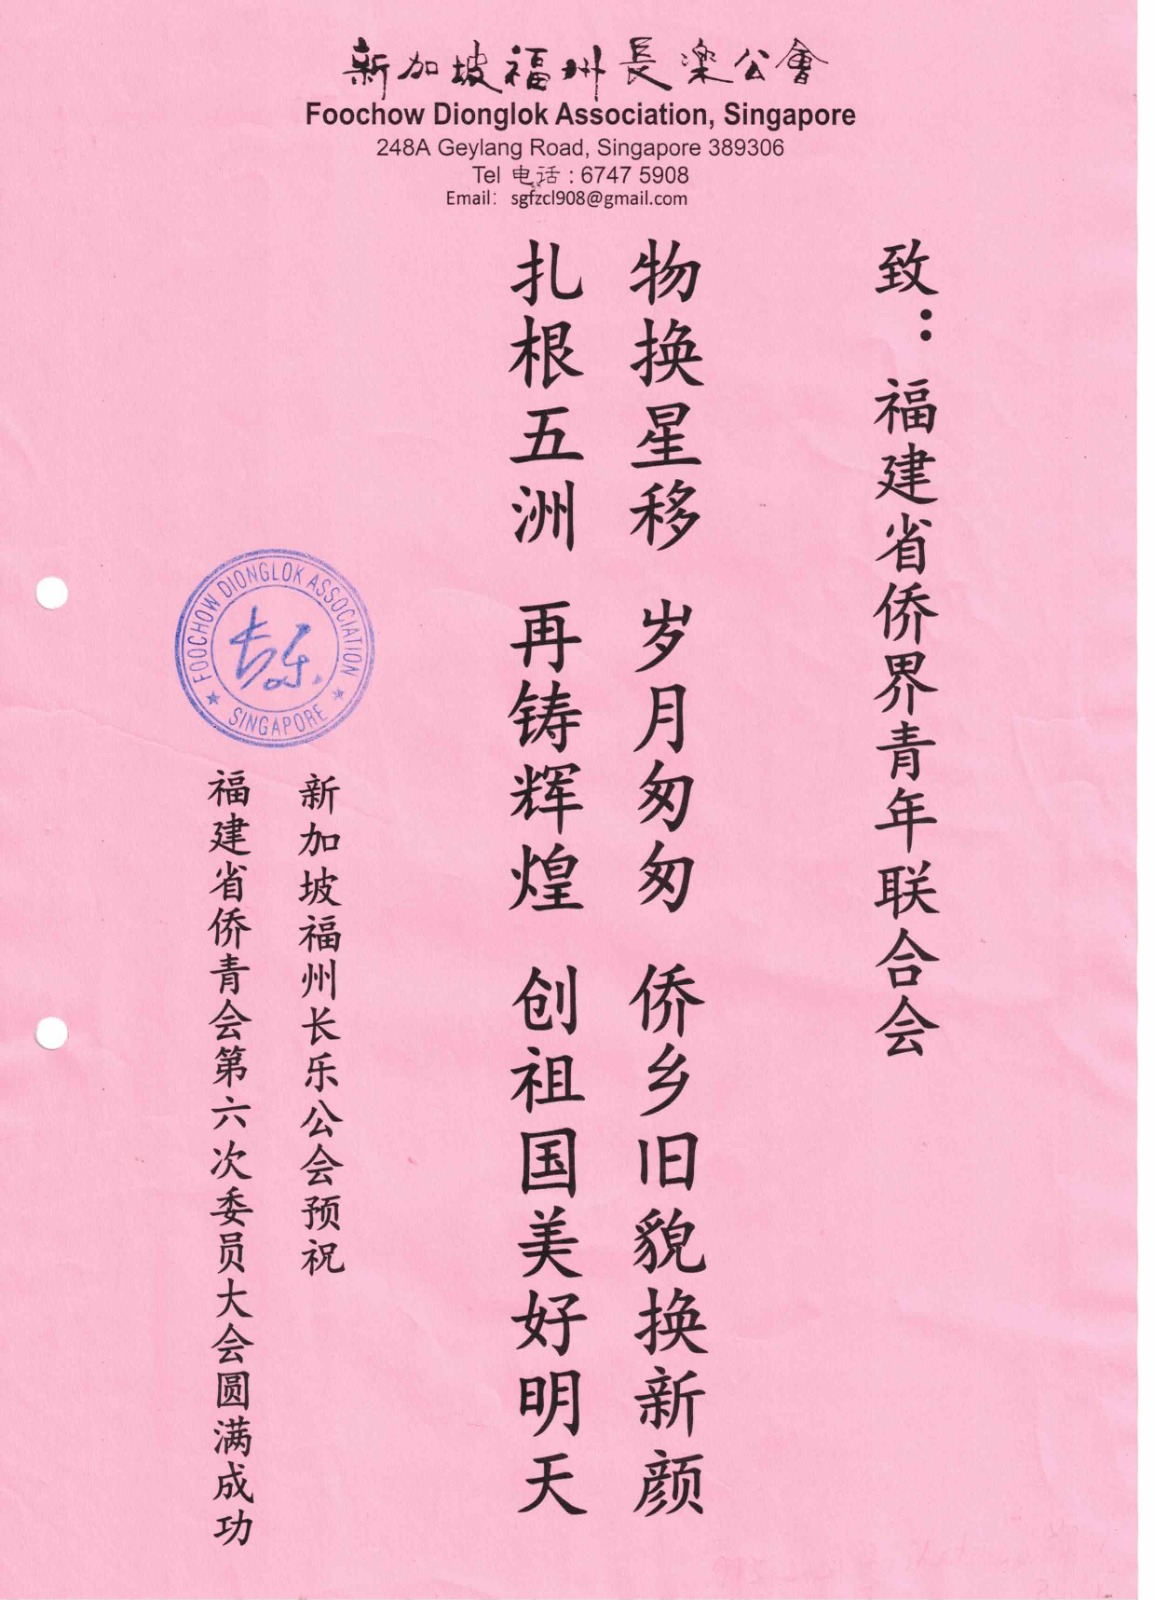 新加坡福州長楽公會
Foochow Dionglok Association, Singapore
248A Geylang Road, Singapore 389306
Tel 电话 : 6747 5908
Email: sgfzcl908@gmail.com
致：福建省侨界青年联合会
物换星移 岁月匆匆 侨乡旧貌换新颜
扎根五洲 再铸辉煌 创祖国美好明天
新加坡福州长乐公会预祝
福建省侨青会第六次委员大会圆满成功
FOOCHOW DIONGLOK ASSOCIATION
长乐
★ SINGAPORE ★